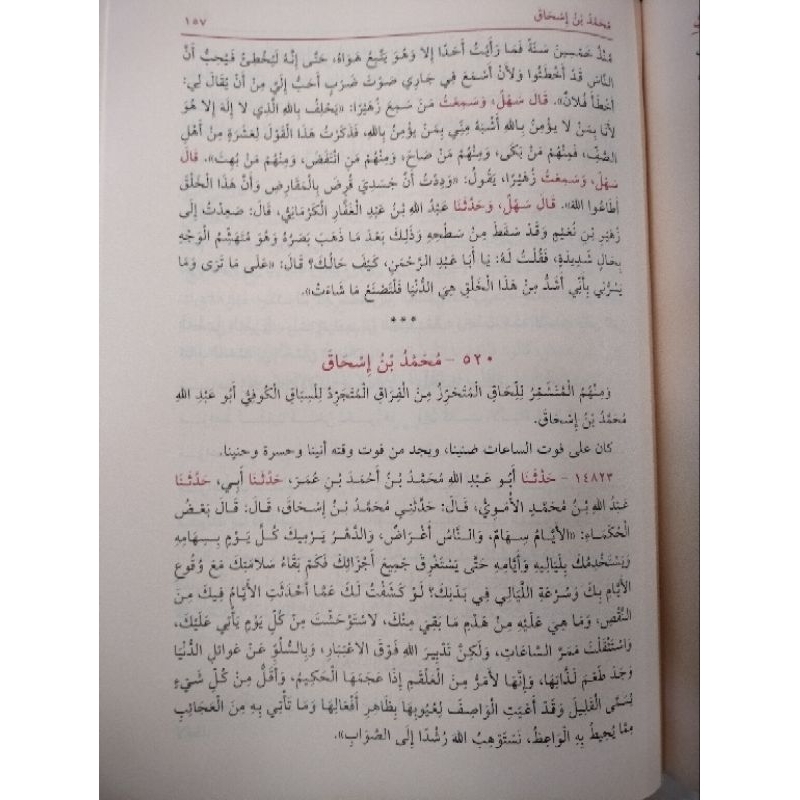 مُحَمَّدُ بْنُ إِسْحَاقَ ١٥٧
مُنْذُ خَمْسِينَ سَنَةً فَمَا رَأَيْتُ أَحَدًا إِلَّا وَهُوَ يَتَّبِعُ هَوَاهُ، حَتَّى إِنَّهُ لَيُخْطِئُ فَيُحِبُّ أَنَّ
النَّاسَ قَدْ أَخْطَئُوا وَلَأَنْ أَسْمَعَ فِي جَارِي صَوْتَ ضَرْبٍ أَحَبُّ إِلَيَّ مِنْ أَنْ يُقَالَ لِي:
أَخْطَأَ فُلَانٌ». قَالَ سَهْلٌ، وَسَمِعْتُ مَنْ سَمِعَ زُهَيْرًا: «يَحْلِفُ بِاللهِ الَّذِي لَا إِلَهَ إِلَّا هُوَ
لَأَنَا بِمَنْ لَا يُؤْمِنُ بِاللهِ أَشْبَهُ مِنِّي بِمَنْ يُؤْمِنُ بِاللهِ، فَذَكَرْتُ هَذَا الْقَوْلَ لِعَشَرَةٍ مِنْ أَهْلِ
الصُّفِّ، فَمِنْهُمْ مَنْ بَكَى، وَمِنْهُمْ مَنْ صَاحَ، وَمِنْهُمْ مَنِ انْتَفَضَ، وَمِنْهُمْ مَنْ بُهِتَ». قَالَ
سَهْلٌ، وَسَمِعْتُ زُهَيْرًا، يَقُولُ: «وَدِدْتُ أَنَّ جَسَدِي قُرِضَ بِالْمَقَارِضِ وَأَنَّ هَذَا الْخَلْقَ
أَطَاعُوا اللهَ». قَالَ سَهْلٌ، وَحَدَّثَنَا عَبْدُ اللهِ بْنُ عَبْدِ الْغَفَّارِ الْكَرْمَانِيُّ، قَالَ: صَعِدْتُ إِلَى
زُهَيْرِ بْنِ نُعَيْمٍ وَقَدْ سَقَطَ مِنْ سَطْحِهِ وَذَلِكَ بَعْدَ مَا ذَهَبَ بَصَرُهُ وَهُوَ مُتَهَشِّمُ الْوَجْهِ
بِحَالٍ شَدِيدَةٍ، فَقُلْتُ لَهُ: يَا أَبَا عَبْدِ الرَّحْمَنِ، كَيْفَ حَالُكَ؟ قَالَ: «عَلَى مَا تَرَى وَمَا
يَسُرُّنِي بِأَنِّي أَشَدُّ مِنْ هَذَا الْخَلْقِ هِيَ الدُّنْيَا فَلْتَصْنَعْ مَا شَاءَتْ».
***
٥٢٠ - مُحَمَّدُ بْنُ إِسْحَاقَ
وَمِنْهُمُ الْمُتَشَمِّرُ لِلِّحَاقِ الْمُتَحَرِّزُ مِنَ الْفِرَاقِ الْمُتَجَرِّدُ لِلسِّبَاقِ الْكُوفِيُّ أَبُو عَبْدِ اللهِ
مُحَمَّدُ بْنُ إِسْحَاقَ.
كان على فوت الساعات ضنينا، ويجد من فوت وقته أنينا وحسرة وحنينا.
١٤٨٢٣ - حَدَّثَنَا أَبُو عَبْدِ اللهِ مُحَمَّدُ بْنُ أَحْمَدَ بْنِ عُمَرَ، حَدَّثَنَا أَبِي، حَدَّثَنَا
عَبْدُ اللهِ بْنُ مُحَمَّدٍ الْأُمَوِيُّ، قَالَ: حَدَّثَنِي مُحَمَّدُ بْنُ إِسْحَاقَ، قَالَ: قَالَ بَعْضُ
الْحُكَمَاءِ: «الْأَيَّامُ سِهَامٌ، وَالنَّاسُ أَغْرَاضٌ، وَالدَّهْرُ يَرْمِيكَ كُلَّ يَوْمٍ بِسِهَامِهِ
وَيَسْتَخْدِمُكَ بِلَيَالِيهِ وَأَيَّامِهِ حَتَّى يَسْتَغْرِقَ جَمِيعَ أَجْزَائِكَ فَكَمْ بَقَاءُ سَلَامَتِكَ مَعَ وُقُوعِ
الْأَيَّامِ بِكَ وَسُرْعَةِ اللَّيَالِي فِي بَدَنِكَ؟ لَوْ كَشَفْتُ لَكَ عَمَّا أَحْدَثَتِ الْأَيَّامُ فِيكَ مِنَ
النَّقْصِ، وَمَا هِيَ عَلَيْهِ مِنْ هَدْمِ مَا بَقِيَ مِنْكَ، لَاسْتَوْحَشْتَ مِنْ كُلِّ يَوْمٍ يَأْتِي عَلَيْكَ،
وَاسْتَثْقَلْتَ مَمَرَّ السَّاعَاتِ، وَلَكِنَّ تَدْبِيرَ اللهِ فَوْقَ الِاعْتِبَارِ، وَبِالسُّلُوِّ عَنْ غَوَائِلِ الدُّنْيَا
وَجَدَ طَعْمَ لَذَّاتِهَا، وَإِنَّهَا لَأَمَرُّ مِنَ الْعَلْقَمِ إِذَا عَجَمَهَا الْحَكِيمُ، وَأَقَلُّ مِنْ كُلِّ شَيْءٍ
يُسَمَّى الْقَلِيلَ وَقَدْ أَعْيَتِ الْوَاصِفَ لِعُيُوبِهَا بِظَاهِرِ أَفْعَالِهَا وَمَا تَأْتِي بِهِ مِنَ الْعَجَائِبِ
مِمَّا يُحِيطُ بِهِ الْوَاعِظُ، نَسْتَوْهِبُ اللهَ رُشْدًا إِلَى الصَّوَابِ».